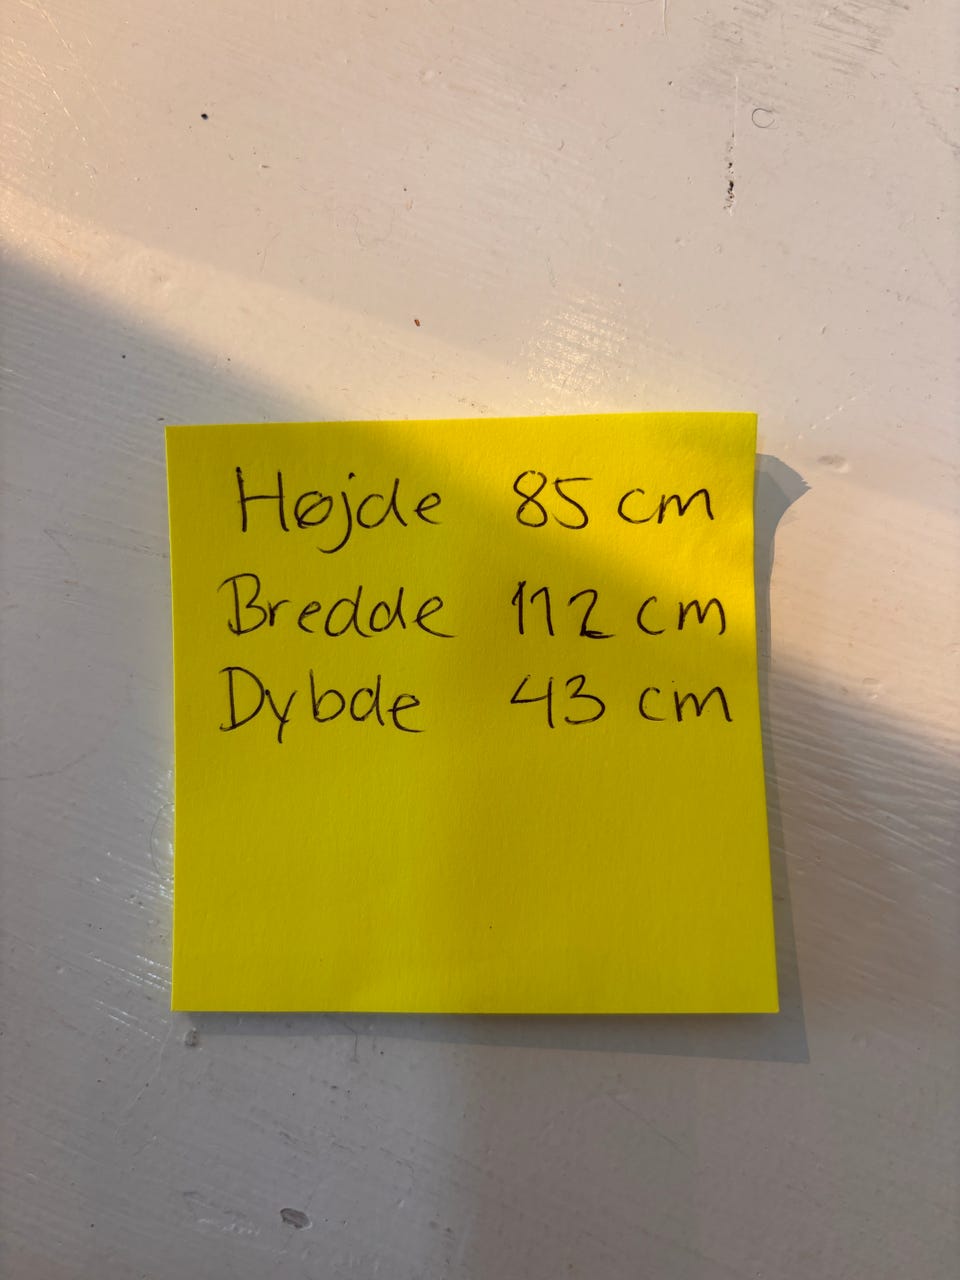 Højde 85 cm
Bredde 112 cm
Dybde 43 cm